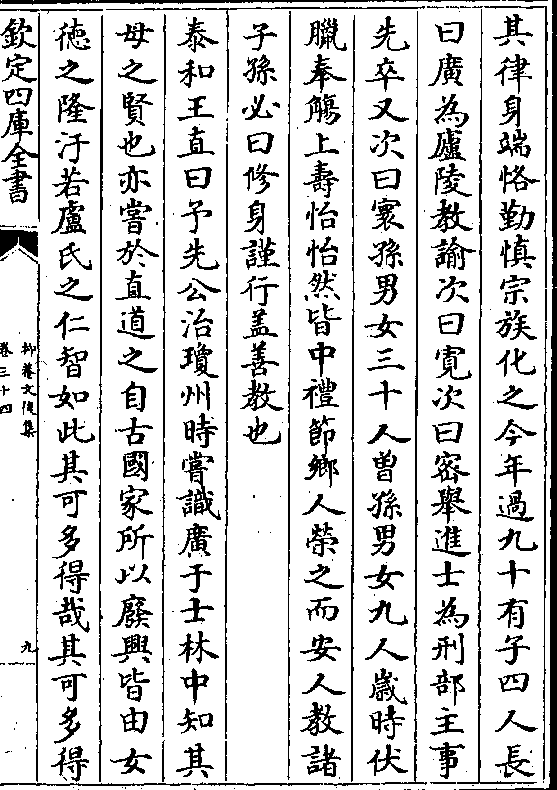 其律身端恪勤慎宗族化之今年過九十有子四人長
曰廣為廬陵教諭次曰寛次曰宻舉進士為刑部主事
先卒又次曰寰孫男女三十人曽孫男女九人歲時伏
臘奉觴上壽怡怡然皆中禮節鄉人榮之而安人教諸
子孫必曰修身謹行盖善教也
泰和王直曰予先公治瓊州時嘗識廣于士林中知其
母之賢也亦嘗於直道之自古國家所以廢興皆由女
徳之隆汙若盧氏之仁智如此其可多得哉其可多得
欽定四庫全書
抑菴文後集
卷三十四
九